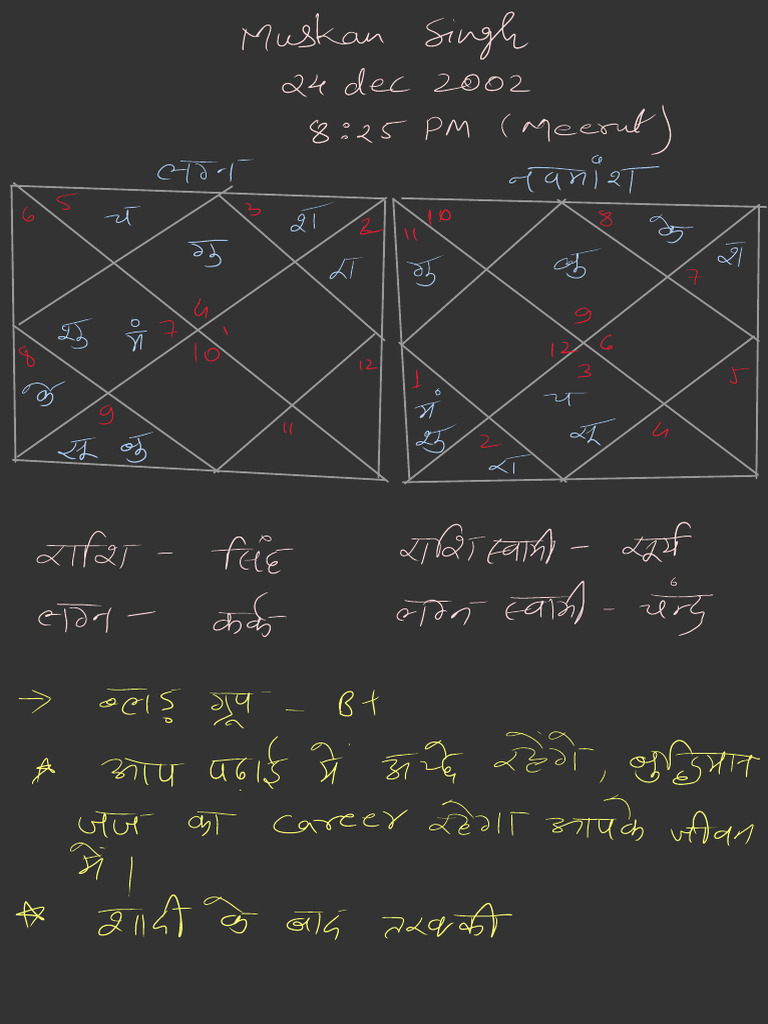 Muskan Singh
24 dec 2002
8:25 PM (Meerut)
लग्न
नवमांश
6 5 च 3 श 2
गु रा
शु मं 7 4 1
8 10 12
के 9 11
सू बु
10 8 के
11 गु बु श 7
9
12 6
1 3 5
मं च
शु 2 सू 4
रा
राशि - सिंह राशि स्वामी - सूर्य
लग्न - कर्क लग्न स्वामी - चंन्द्र
→ ब्लड़ ग्रूप - B+
* आप पढ़ाई में अच्छे रहेंगे, बुद्धिमान
जज का career रहेगा आपके जीवन
में।
* शादी के बाद तरक्की